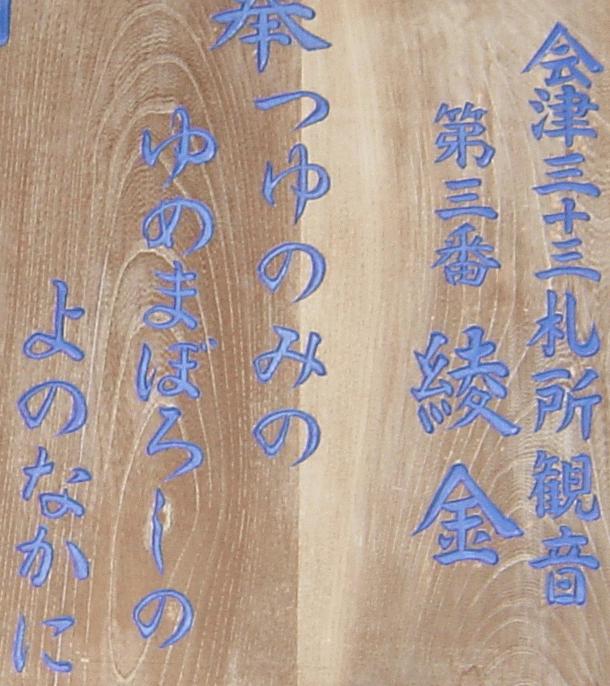 会津三十三札所観音
第三番 綾金
奉
つゆのみの
ゆめまぼろしの
よのなかに